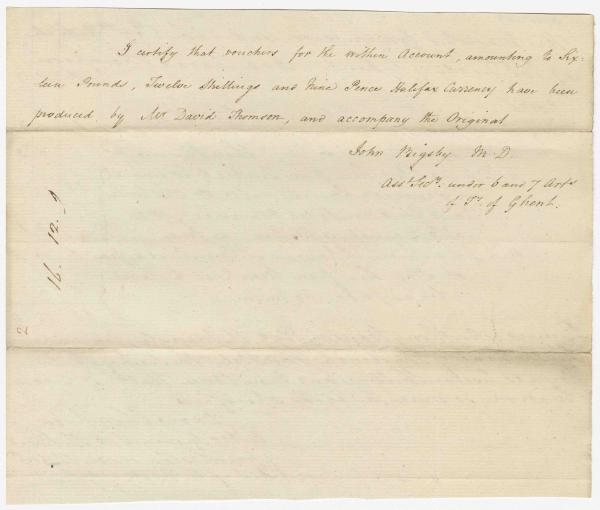 I certify that vouchers for the within Account, amounting to Six-
teen Pounds, Twelve Shillings and Nine Pence Halifax Currency have been
produced by Mr David Thomson, and accompany the Original
John Bigsby M.D.
Asst Secy. under 6 and 7 Arts
of Ty. of Ghent.
16. 12. 9